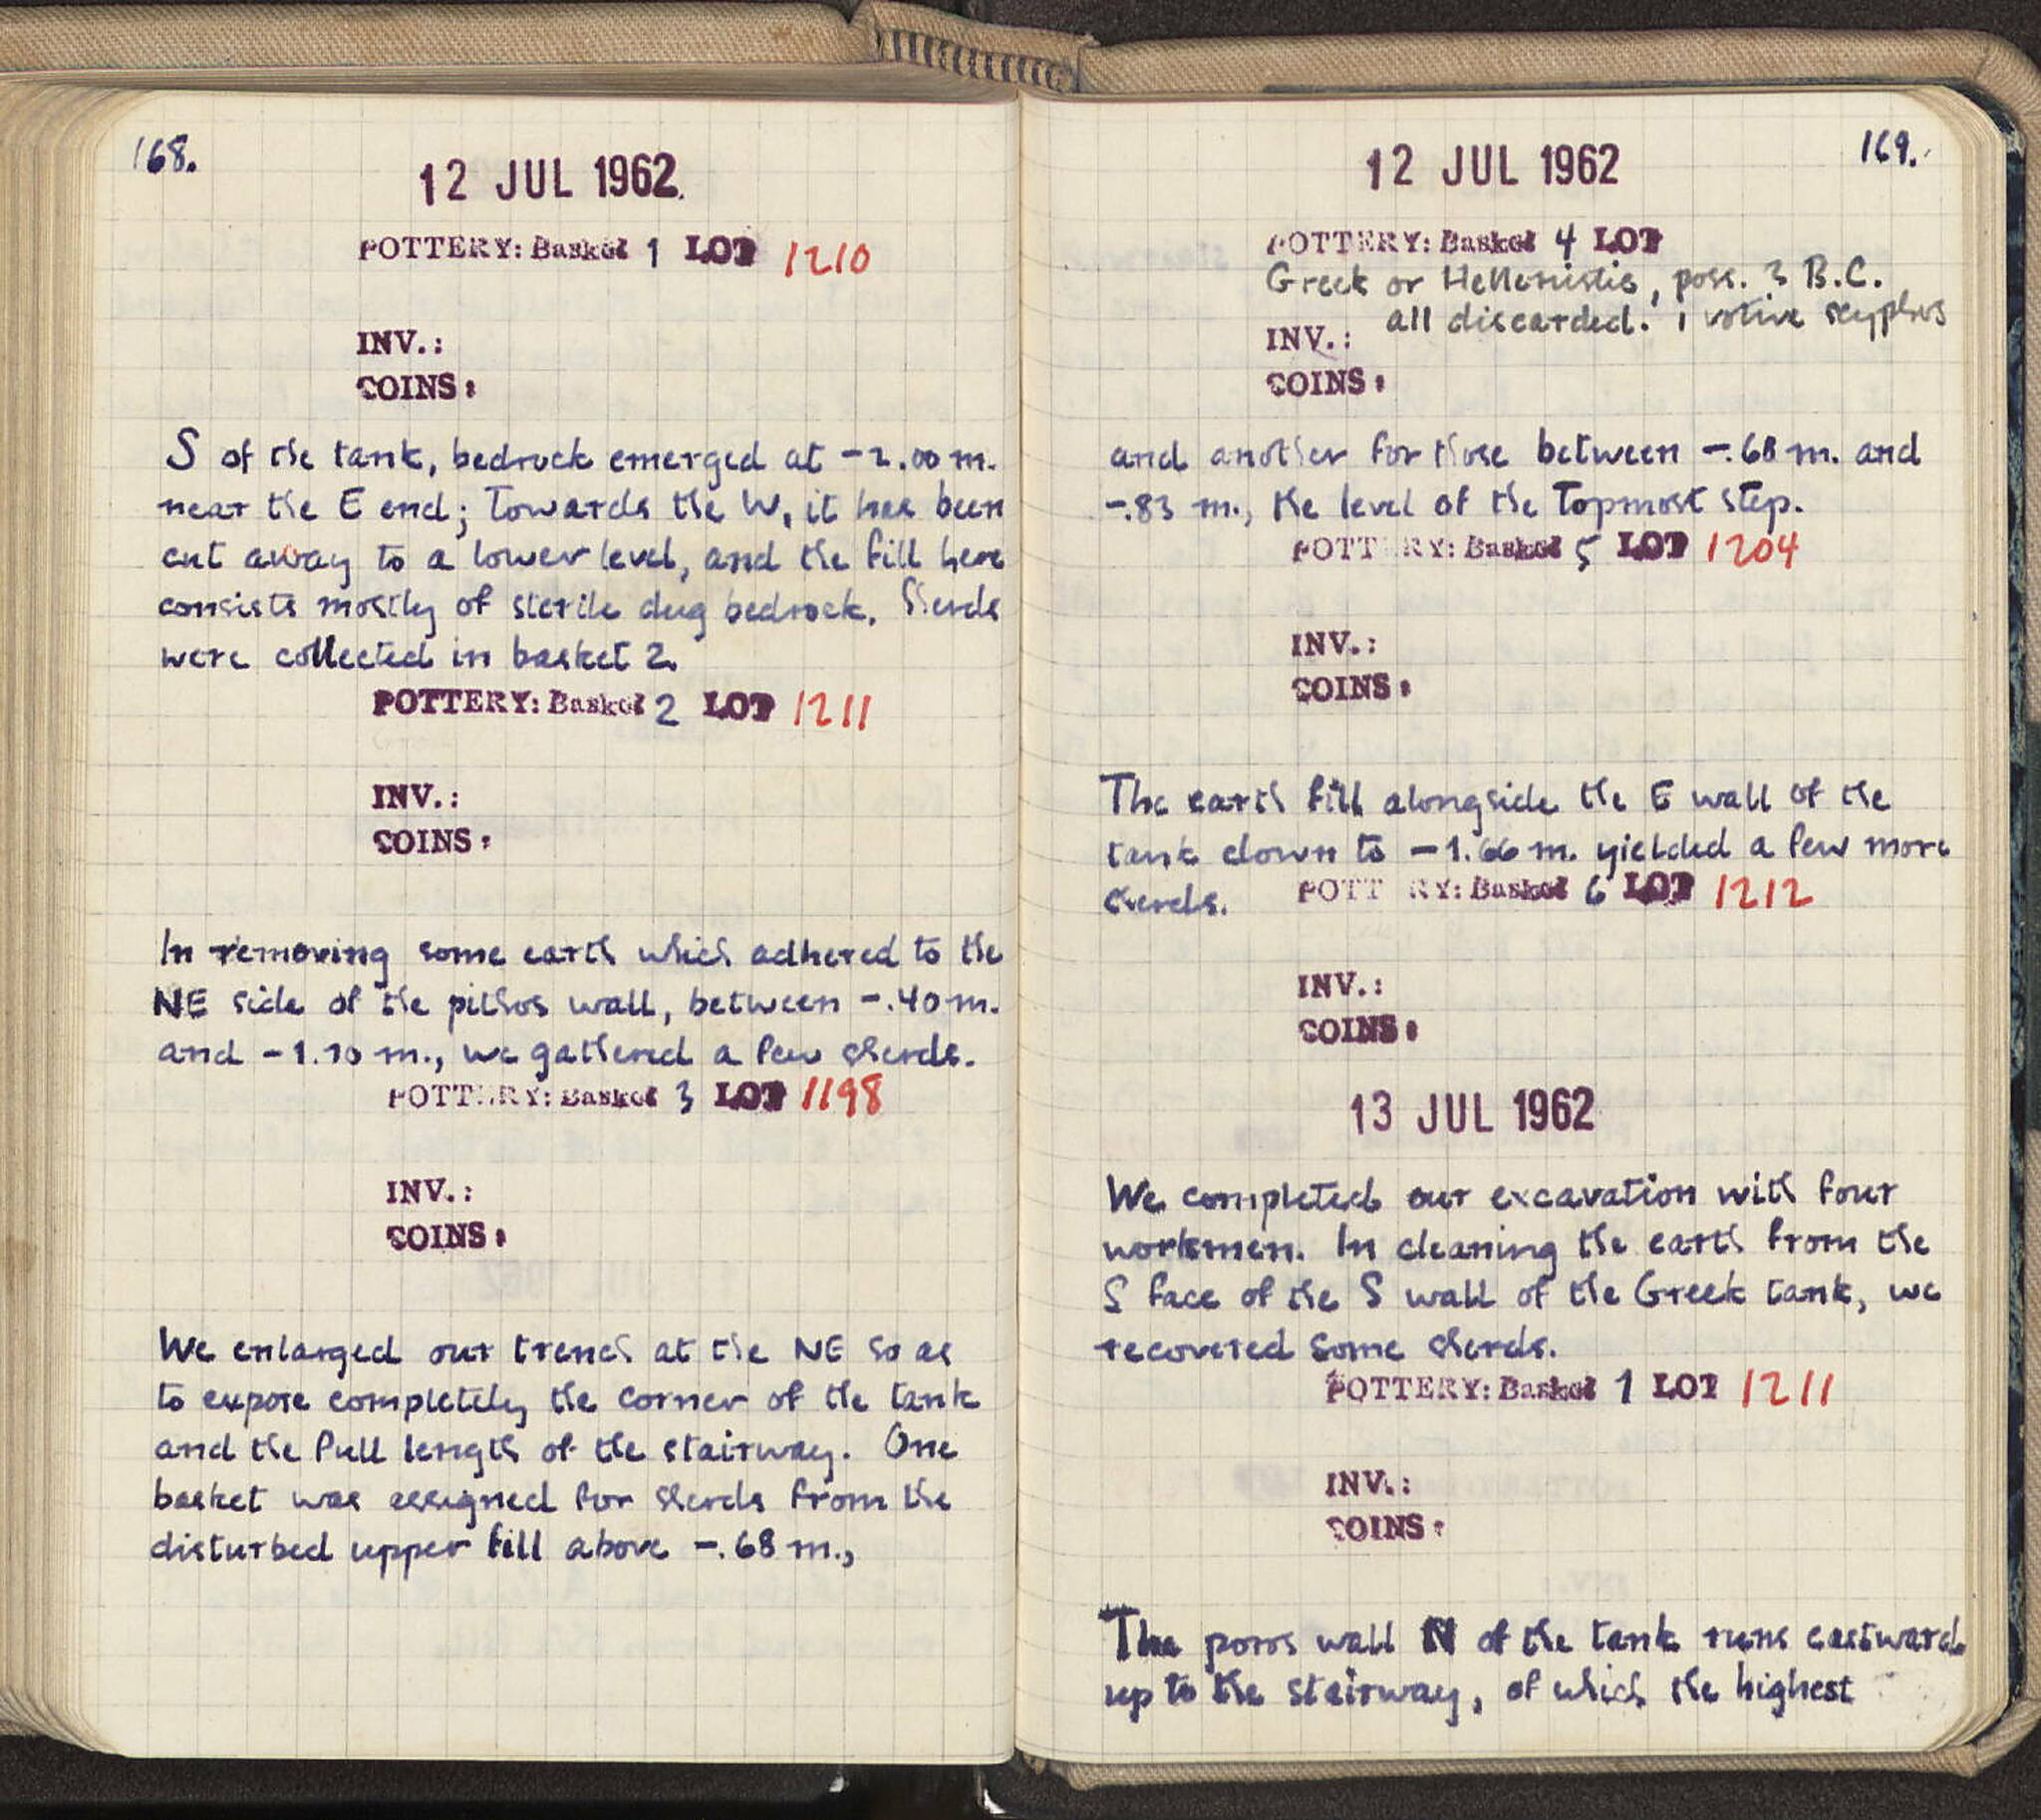 168.
12 JUL 1962.
POTTERY: Basket 1 LOT 1210
INV.:
COINS:
S of the tank, bedrock emerged at -2.00 m.
near the E end; Towards the W, it has been
cut away to a lower level, and the fill here
consists mostly of sterile dug bedrock. Sherds
were collected in basket 2.
POTTERY: Basket 2 LOT 1211
INV.:
COINS:
In removing some earth which adhered to the
NE side of the pithos wall, between -.40 m.
and -1.10 m., we gathered a few sherds.
POTTERY: Basket 3 LOT 1198
INV.:
COINS:
We enlarged our trench at the NE so as
to expose completely the corner of the tank
and the full length of the stairway. One
basket was assigned for sherds from the
disturbed upper fill above -.68 m.,
12 JUL 1962
169.
POTTERY: Basket 4 LOT
Greek or Hellenistic, poss. 3 B.C.
all discarded. 1 votive skyphos
INV.:
COINS:
and another for those between -.68 m. and
-.83 m., the level of the Topmost step.
POTTERY: Basket 5 LOT 1204
INV.:
COINS:
The earth fill alongside the E wall of the
tank down to -1.66 m. yielded a few more
sherds. POTTERY: Basket 6 LOT 1212
INV.:
COINS:
13 JUL 1962
We completed our excavation with four
workmen. In cleaning the earth from the
S face of the S wall of the Greek tank, we
recovered some sherds.
POTTERY: Basket 1 LOT 1211
INV.:
COINS:
The poros wall N of the tank runs eastward
up to the stairway, of which the highest